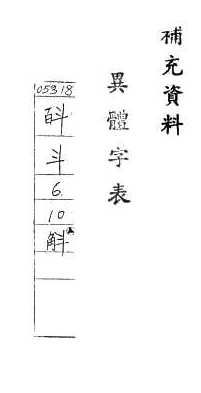 補充資料
異體字表
05318
斗
6
10
斛